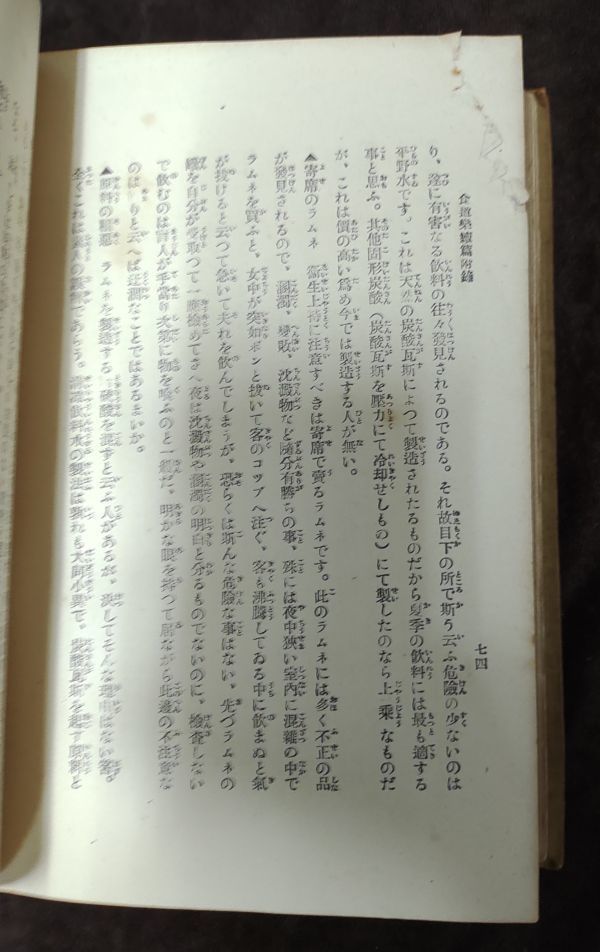 食道樂續篇附錄
七四
り、遂に有害なる飲料の往々發見されるのである。それ故目下の所で斯う云ふ危險の少ないのは
平野水です。これは天然の炭酸瓦斯によつて製造されたるものだから夏季の飲料には最も適する
事と思ふ。其他固形炭酸（炭酸瓦斯を壓力にて冷却せしもの）にて製したのなら上乘なものだ
が、これは價の高い爲め今では製造する人が無い。
▲寄席のラムネ 衞生上特に注意すべきは寄席で賣るラムネです。此のラムネには多く不正の品
が發見されるので、溷濁、變敗、沈澱物など隨分有勝ちの事、殊には夜中狹い室內に混雜の中で
ラムネを買ふと、女中が突如ポンと拔いて客のコップへ注ぐ、客も沸騰してゐる中に飲まぬと氣
が拔けると云つて急いで夫れを飲んでしまうが、恐らくは斯んな危險な事はない。先づラムネの
壜を自分が受取つて一應檢めてさへ夜は沈澱物や溷濁の明白と分るものでないのに、檢査しない
で飲むのは盲人が手當り次第に物を喰ふのと一般だ、明かな眼を持つて居ながら此邊の不注意な
のは りと云へば迂濶なことではあるまいか。
▲原料の製惡 ラムネを製造する 硫酸を混すと云ふ人があるが、決してそんな理由はない筈。
全くこれは素人の誤解であらう。清涼飲料水の製法は孰れも大同小異で、炭酸瓦斯を起す原料と